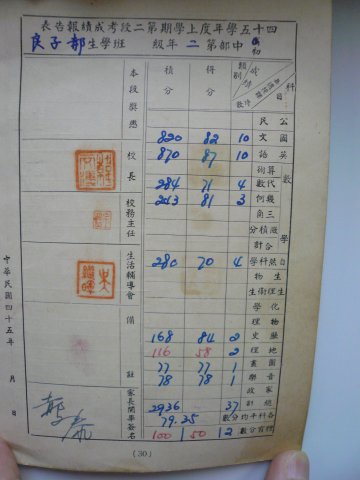 四十五學年度上學期第二段考成績報告表
初中部第二年級 班學生郭子良
科目 成績 類別 得分 積分 本段獎懲
公民
國文 10 82 820
英語 10 87 870
數學
算術
代數 4 71 284
幾何 3 81 243
三角
積分合計
自然科學 4 70 280
生物
生理衛生
化學
物理
歷史 2 84 168
地理 2 58 116
圖畫 1 77 77
音樂 1 78 78
家政
總計 37 2936
各科平均分數 79.35
體育分數 2 50 100
校長
校務主任
生活輔導會
備註
家長閱畢簽名
中華民國四十五年 月 日
(30)